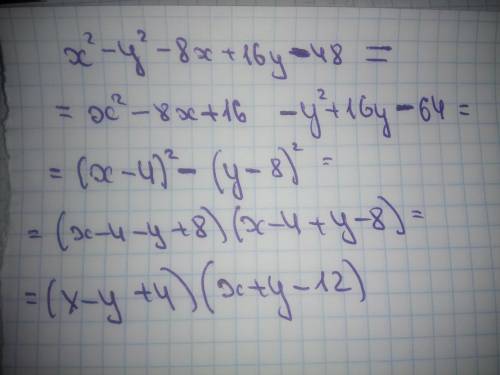 x² - y² - 8x + 16y - 48 =
= x² - 8x + 16 - y² + 16y - 64 =
= (x - 4)² - (y - 8)² =
= (x - 4 - y + 8)(x - 4 + y - 8) =
= (x - y + 4)(x + y - 12)